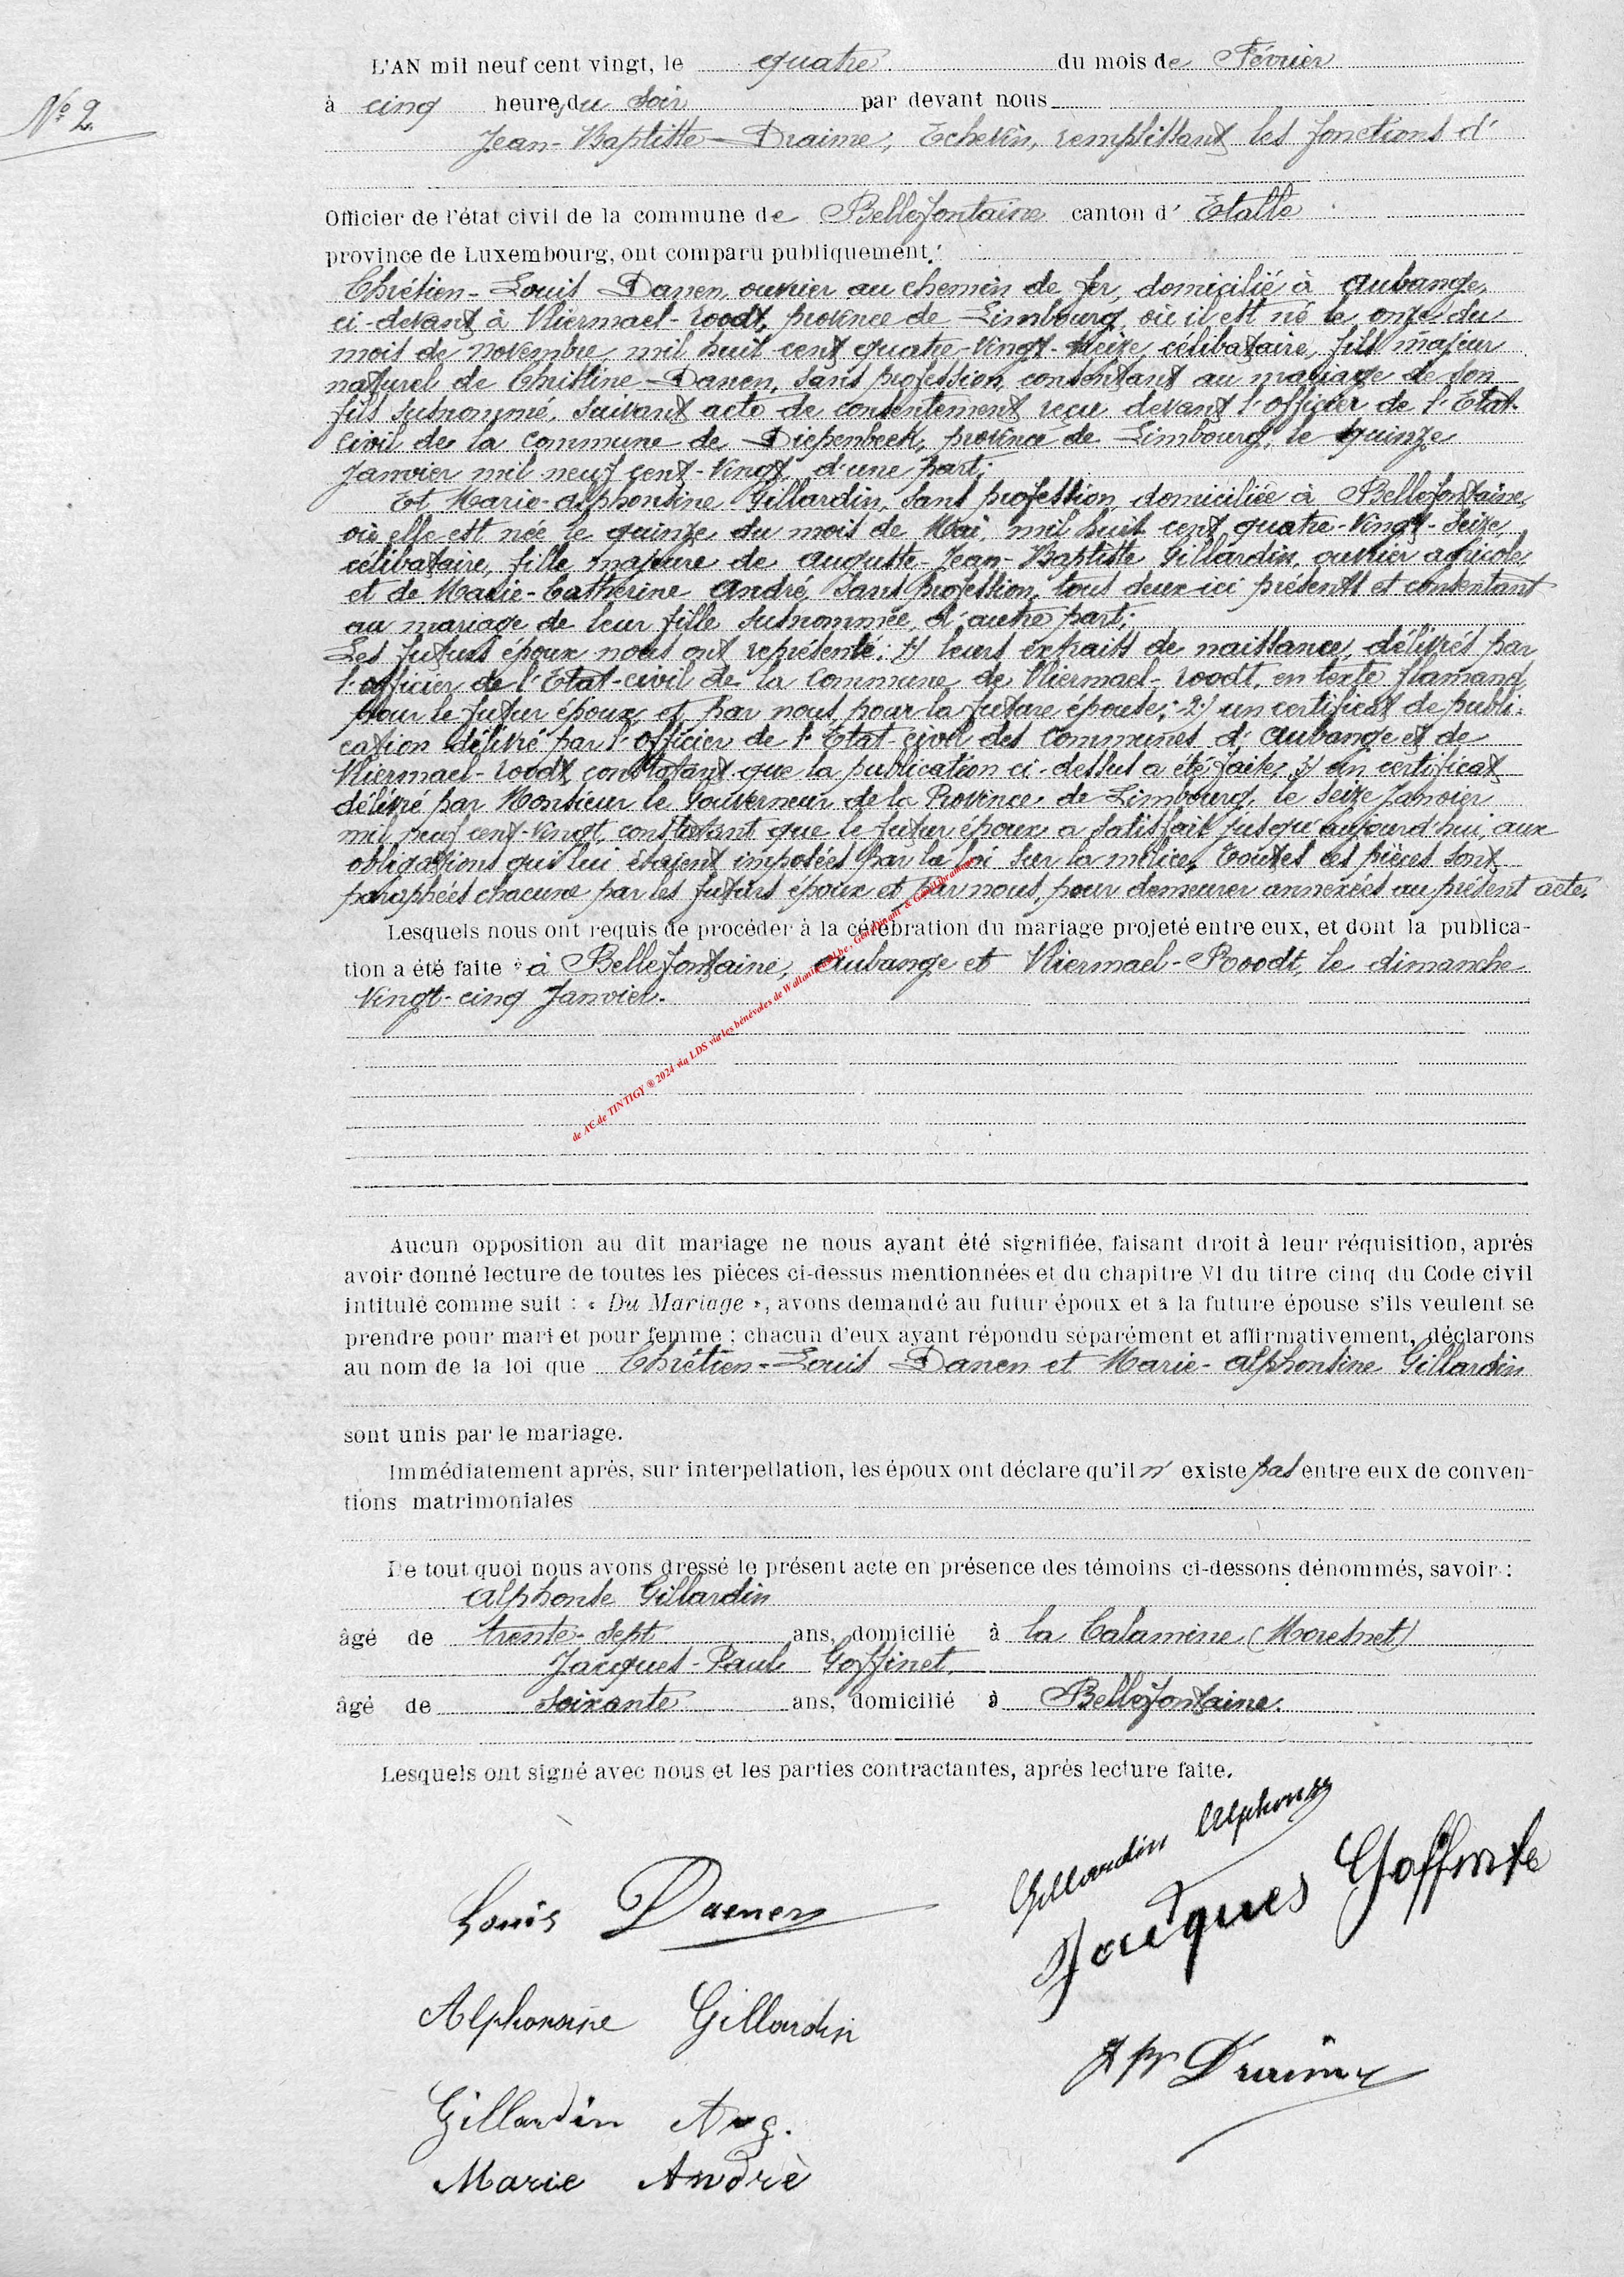 N° 2
L'AN mil neuf cent vingt, le quatre du mois de Février
à cinq heures du soir par devant nous
Jean-Baptiste Draime, Echevin, remplissant les fonctions d'
Officier de l'état civil de la commune de Bellefontaine canton d' Etalle
province de Luxembourg, ont comparu publiquement:
Chrétien-Louis Danen, ouvrier au chemin de fer, domicilié à Aubange,
ci-devant à Vliermael-roodt, province de Limbourg où il est né le onze du
mois de novembre mil huit cent quatre-vingt-treize, célibataire, fils majeur
naturel de Christine Danen, sans profession, consentant au mariage de son
fils susnommé, suivant acte de consentement reçu devant l'officier de l'Etat-
civil de la commune de Diepenbeek, province de Limbourg, le quinze
Janvier mil neuf cent-vingt, d'une part;
Et Marie-Alphonsine Gillardin, sans profession, domiciliée à Bellefontaine,
où elle est née le quinze du mois de Mai, mil huit cent quatre-vingt-seize,
célibataire, fille majeure de Auguste-Jean-Baptiste Gillardin, ouvrier agricole,
et de Marie-Catherine André, sans profession, tous deux ici présents et consentant
au mariage de leur fille susnommée, d'autre part;
Les futurs époux nous ont représenté: 1) leurs extraits de naissance, délivrés par
l'officier de l'Etat-civil de la Commune de Vliermael-roodt, en texte flamand,
pour le futur époux, et par nous, pour la future épouse; 2) un certificat de publi-
cation délivré par l'officier de l'Etat-civil des Communes d'Aubange et de
Vliermael-roodt, constatant que la publication ci-dessus a été faite; 3) un certificat
délivré par Monsieur le Gouverneur de la Province de Limbourg, le seize Janvier
mil neuf cent-vingt, constatant que le futur époux a satisfait jusqu'aujourd'hui aux
obligations qui lui étaient imposées par la loi sur la milice. Toutes ces pièces sont
paraphées chacune par les futurs époux et par nous, pour demeurer annexées au présent acte.
Lesquels nous ont requis de procéder à la célébration du mariage projeté entre eux, et dont la publica-
tion a été faite à Bellefontaine, Aubange et Vliermael-Roodt, le dimanche
vingt-cinq Janvier.
de AC de TINTIGY ® 2024 via LDS via les bénévoles de
Aucun opposition au dit mariage ne nous ayant été signifiée, faisant droit à leur réquisition, après
avoir donné lecture de toutes les pièces ci-dessus mentionnées et du chapitre VI du titre cinq du Code civil
intitulé comme suit : « Du Mariage », avons demandé au futur époux et à la future épouse s'ils veulent se
prendre pour mari et pour femme : chacun d'eux ayant répondu séparément et affirmativement, déclarons
au nom de la loi que Chrétien-Louis Danen et Marie-Alphonsine Gillardin
sont unis par le mariage.
Immédiatement après, sur interpellation, les époux ont déclaré qu'il n' existe pas entre eux de conven-
tions matrimoniales
De tout quoi nous avons dressé le présent acte en présence des témoins ci-dessons dénommés, savoir :
Alphonse Gillardin
âgé de trente-sept ans, domicilié à la Calamine (Moresnet)
Jacques-Paul Goffinet,
âgé de soixante ans, domicilié à Bellefontaine.
Lesquels ont signé avec nous et les parties contractantes, après lecture faite.
Gillardin Alphonse
Louis Daenen
Jacques
Alphonsine Gillardin
Draime
Gillardin Aug.
Marie Andrè